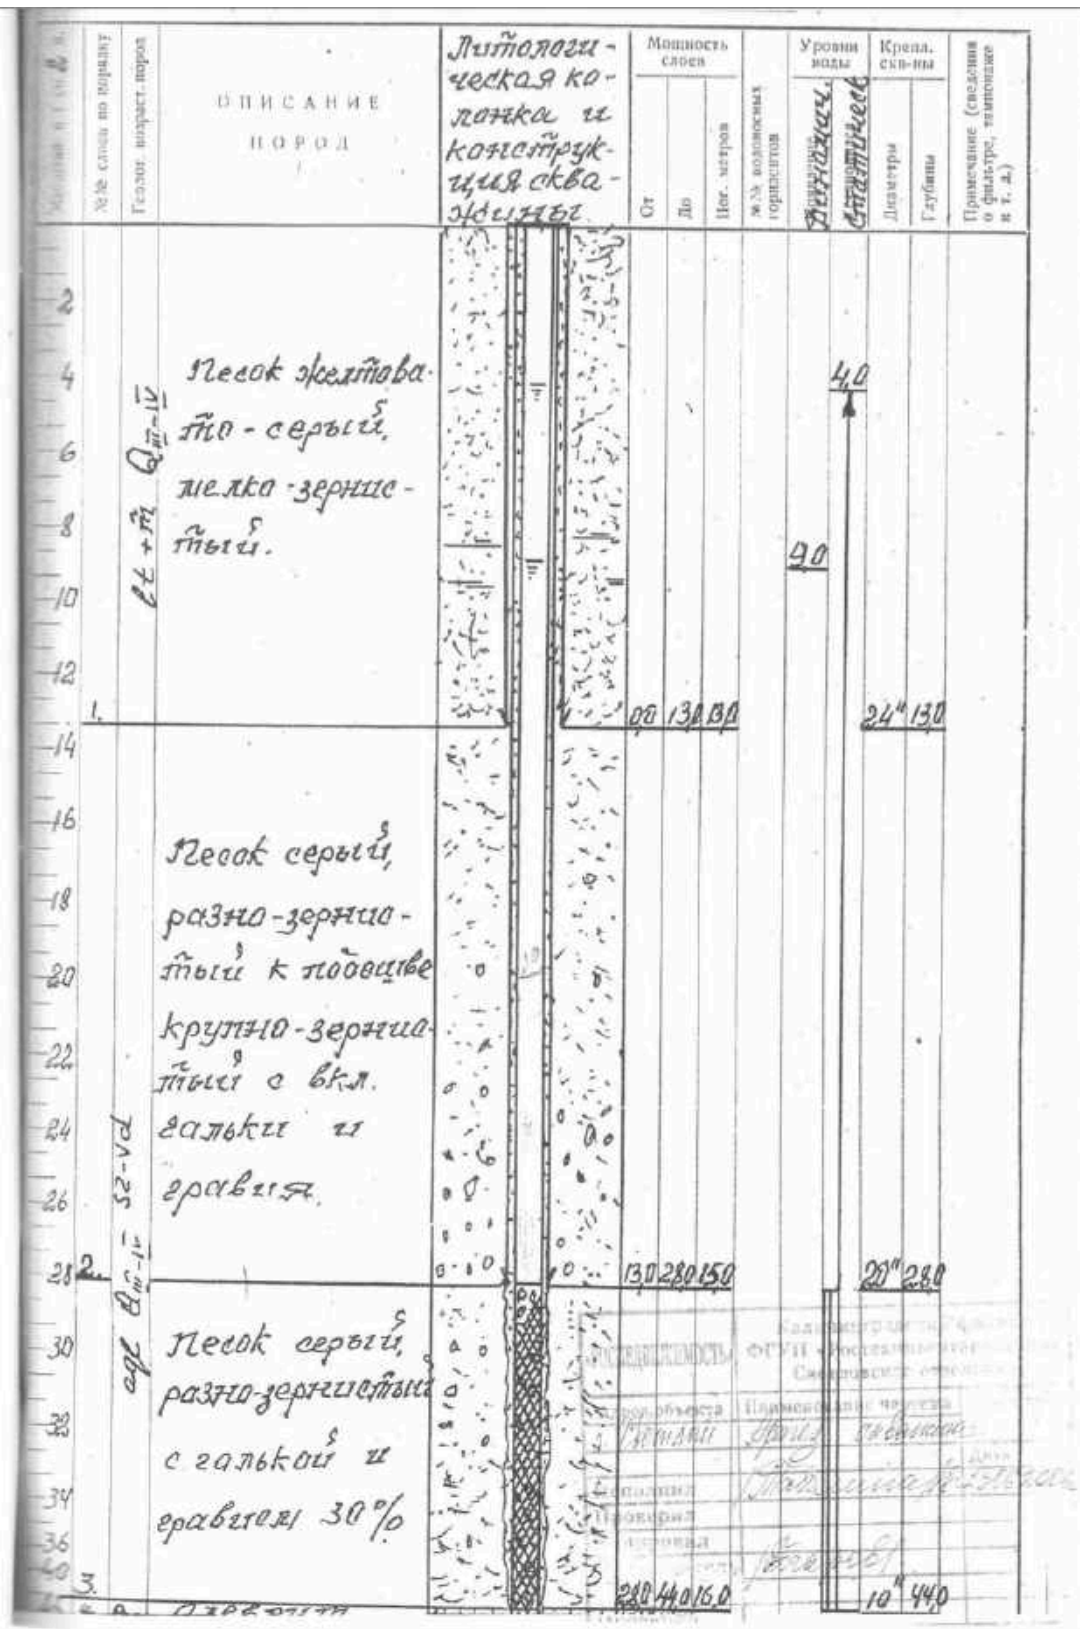 №№ слоев по порядку
Геолог. возраст. пород
ОПИСАНИЕ
ПОРОД
Литологи-
ческая ко-
лонка и
конструк-
ция сква-
жины.
Мощность
слоев
От
До
Пог. метров
№№ водоносных
горизонтов
Уровни
воды
Динамич.
Статическ
Крепл.
скв-ны
Диаметры
Глубины
Примечание (сведения
о фильтре, тампонаже
и т. д.)
2
4
6
8
10
12
14
16
18
20
22
24
26
28
30
32
34
36
40
Q III-IV
Песок желтова-
то-серый,
мелко-зернис-
тый.
4,0
9,0
1. 0,0 13,0 13,0 24" 13,0
Песок серый,
разно-зернис-
тый к подошве
крупно-зернис-
тый с вкл.
гальки и
гравия.
agl Q III-IV sz-vd
2. 13,0 28,0 15,0 20" 28,0
Песок серый,
разно-зернистый
с галькой и
гравием 30%
3. 28,0 44,0 16,0 10" 44,0
РОСТЕХИНВЕНТАРИЗАЦИЯ
ФГУП
Наименование чертежа
Исполнил
Проверил